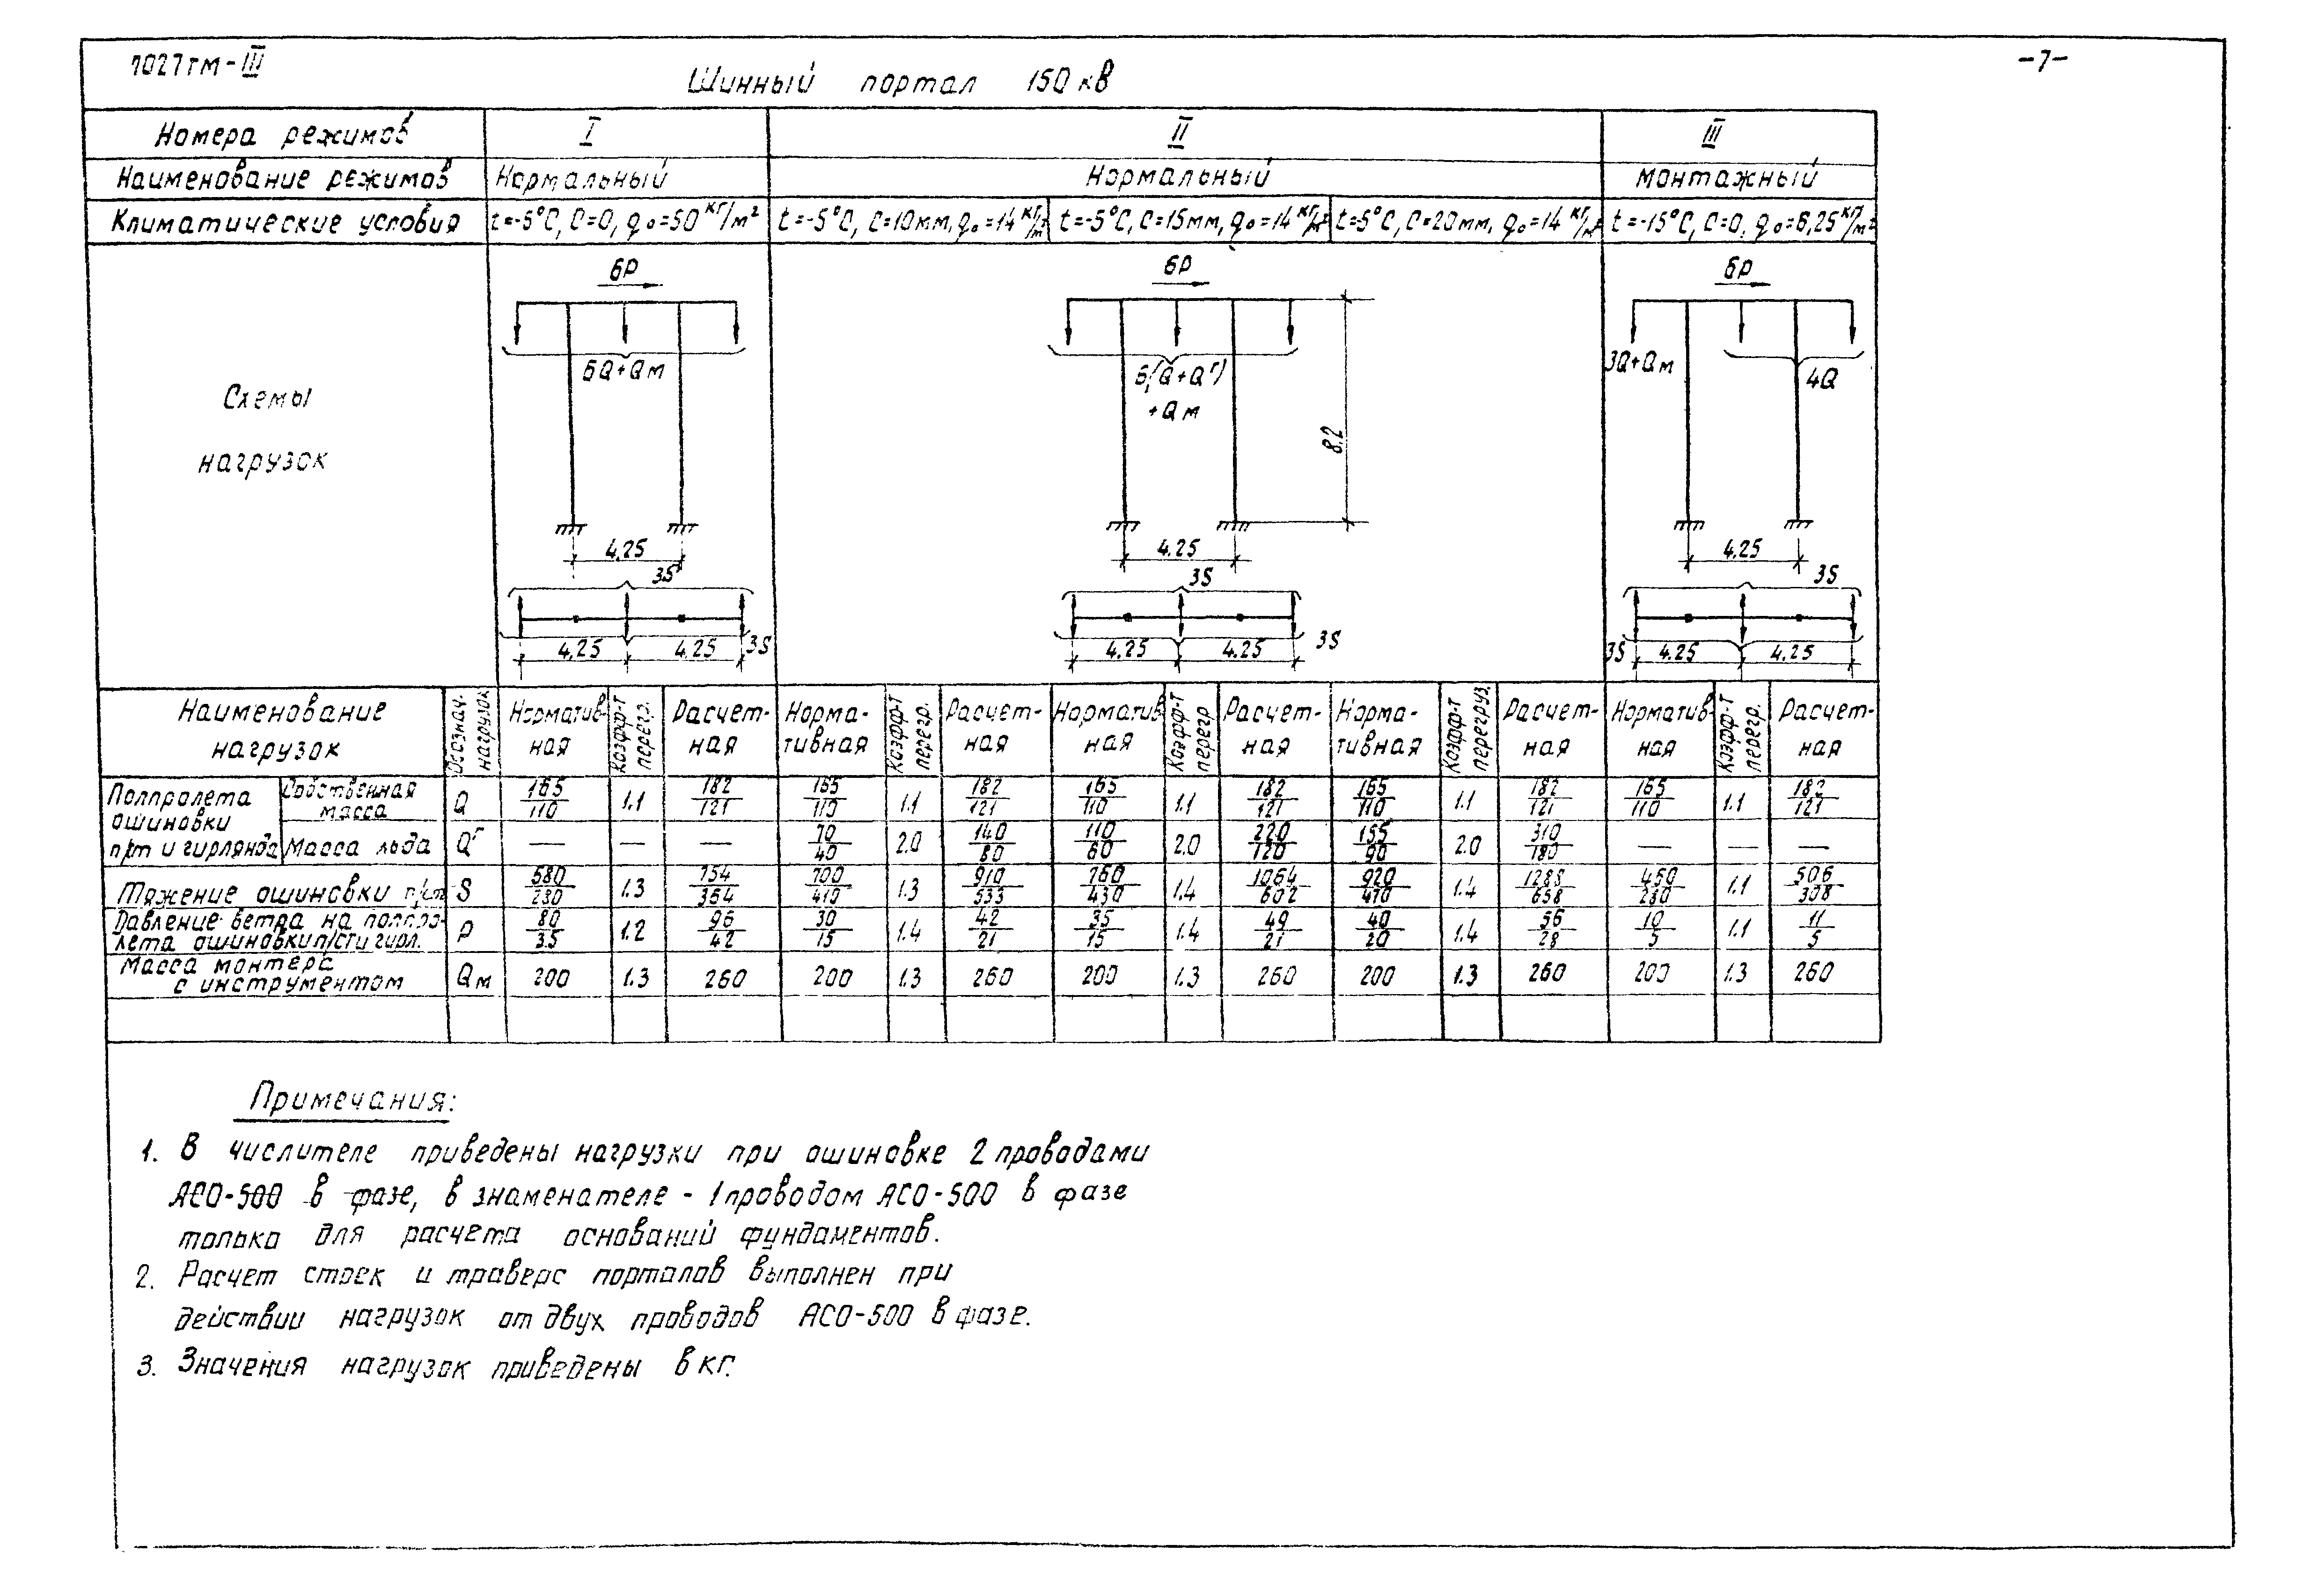 7027тм-III
-7-
Шинный портал 150 кВ
Номера режимов I II III
Наименование режимов Нормальный Нормальный Монтажный
Климатические условия t=-5°C, C=0, q₀=50 кг/м² t=-5°C, C=10мм, q₀=14 кг/м² t=-5°C, C=15мм, q₀=14 кг/м² t=5°C, C=20мм, q₀=14 кг/м² t=-15°C, C=0, q₀=6,25 кг/м²
6P 6P 6P
6Q+Qм 6(Q+Qг) 3Q+Qм 4Q
+Qм
Схемы
нагрузок
8.2
4.25 4.25 4.25
3S 3S 3S
4.25 4.25 3S 4.25 4.25 3S 3S 4.25 4.25
Наименование нагрузок Обознач. нагрузок Норматив-ная Коэфф-т перегр. Расчет-ная Норма-тивная Коэфф-т перегр. Расчет-ная Норматив-ная Коэфф-т перегр Расчет-ная Норма-тивная Коэфф-т перегруз. Расчет-ная Норматив-ная Коэфф-т перегр. Расчет-ная
Полпролета ошиновки п/ст и гирлянда
Собственная масса Q 165/110 1.1 182/121 165/110 1.1 182/121 165/110 1.1 182/121 165/110 1.1 182/121 165/110 1.1 182/121
Масса льда Qг — — — 70/40 2.0 140/80 110/60 2.0 220/120 155/90 2.0 310/180 — — —
Тяжение ошиновки п/ст S 580/280 1.3 754/364 700/410 1.3 910/533 760/430 1.4 1064/602 920/470 1.4 1288/658 460/280 1.1 506/308
Давление ветра на полпро-
лета ошиновки п/ст и гирл. P 80/35 1.2 96/42 30/15 1.4 42/21 35/15 1.4 49/21 40/20 1.4 56/28 10/5 1.1 11/5
Масса монтера
с инструментом Qм 200 1.3 260 200 1.3 260 200 1.3 260 200 1.3 260 200 1.3 260
Примечания:
1. В числителе приведены нагрузки при ошиновке 2 проводами
АСО-500 в фазе, в знаменателе - 1 проводом АСО-500 в фазе
только для расчета оснований фундаментов.
2. Расчет стоек и траверс порталов выполнен при
действии нагрузок от двух проводов АСО-500 в фазе.
3. Значения нагрузок приведены в кг.